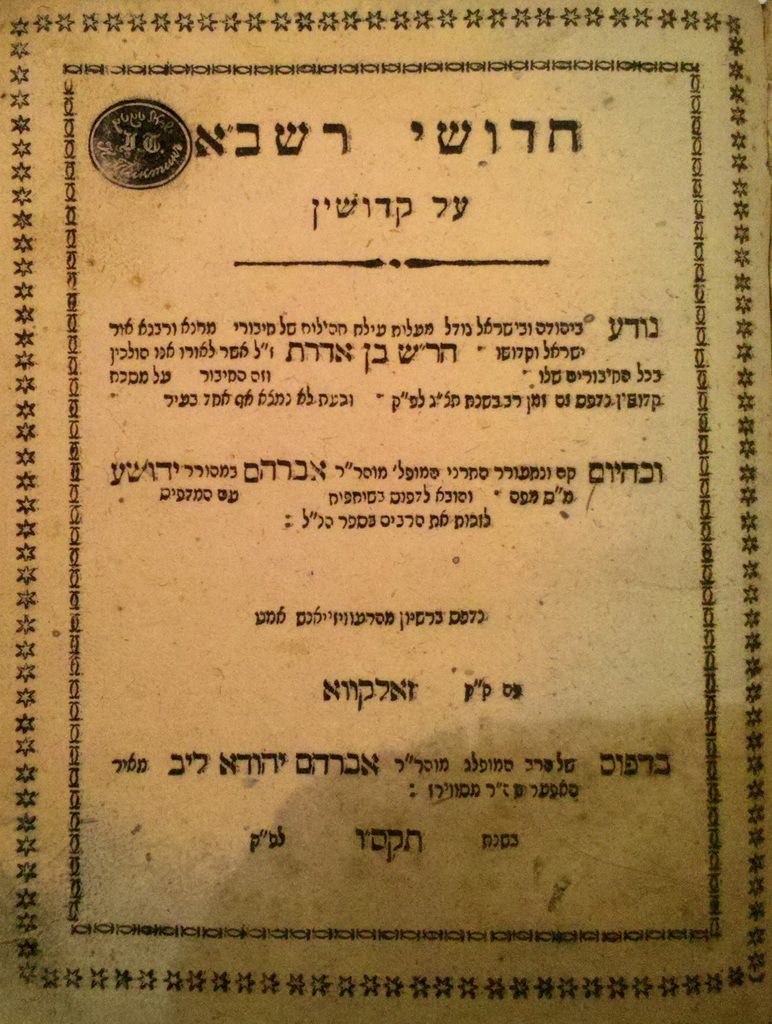 חדושי רשב״א
על קדושין
נודע ביהודה ובישראל גודל מעלות מילת חבילות של חיבורי מרנא ורבנא אור
ישראל וקדושו הר״ש בן אדרת ז״ל אשר לאורו אנו הולכין
בכל החיבורים שלו וזה החיבור על מסכת
קדושין נדפס זה זמן רב בשנת תע״ג לפ״ק ובעת לא נמצא אף אחד בעיר
וכהיום קם ונתעורר התרני המופלג מוהר״ר אברהם במהורר יהושע
מ״ם מפה והובא לדפוס בשותפות עם המדפיס
לזכות את הרבים בספר הנ״ל :
נדפס ברשיון אמט
פה ק״ק זאלקווא
בדפוס של הרב המופלג מוהר״ר אברהם יהודא ליב מאיר
האפער
בשנת תקס״ו לפ״ק